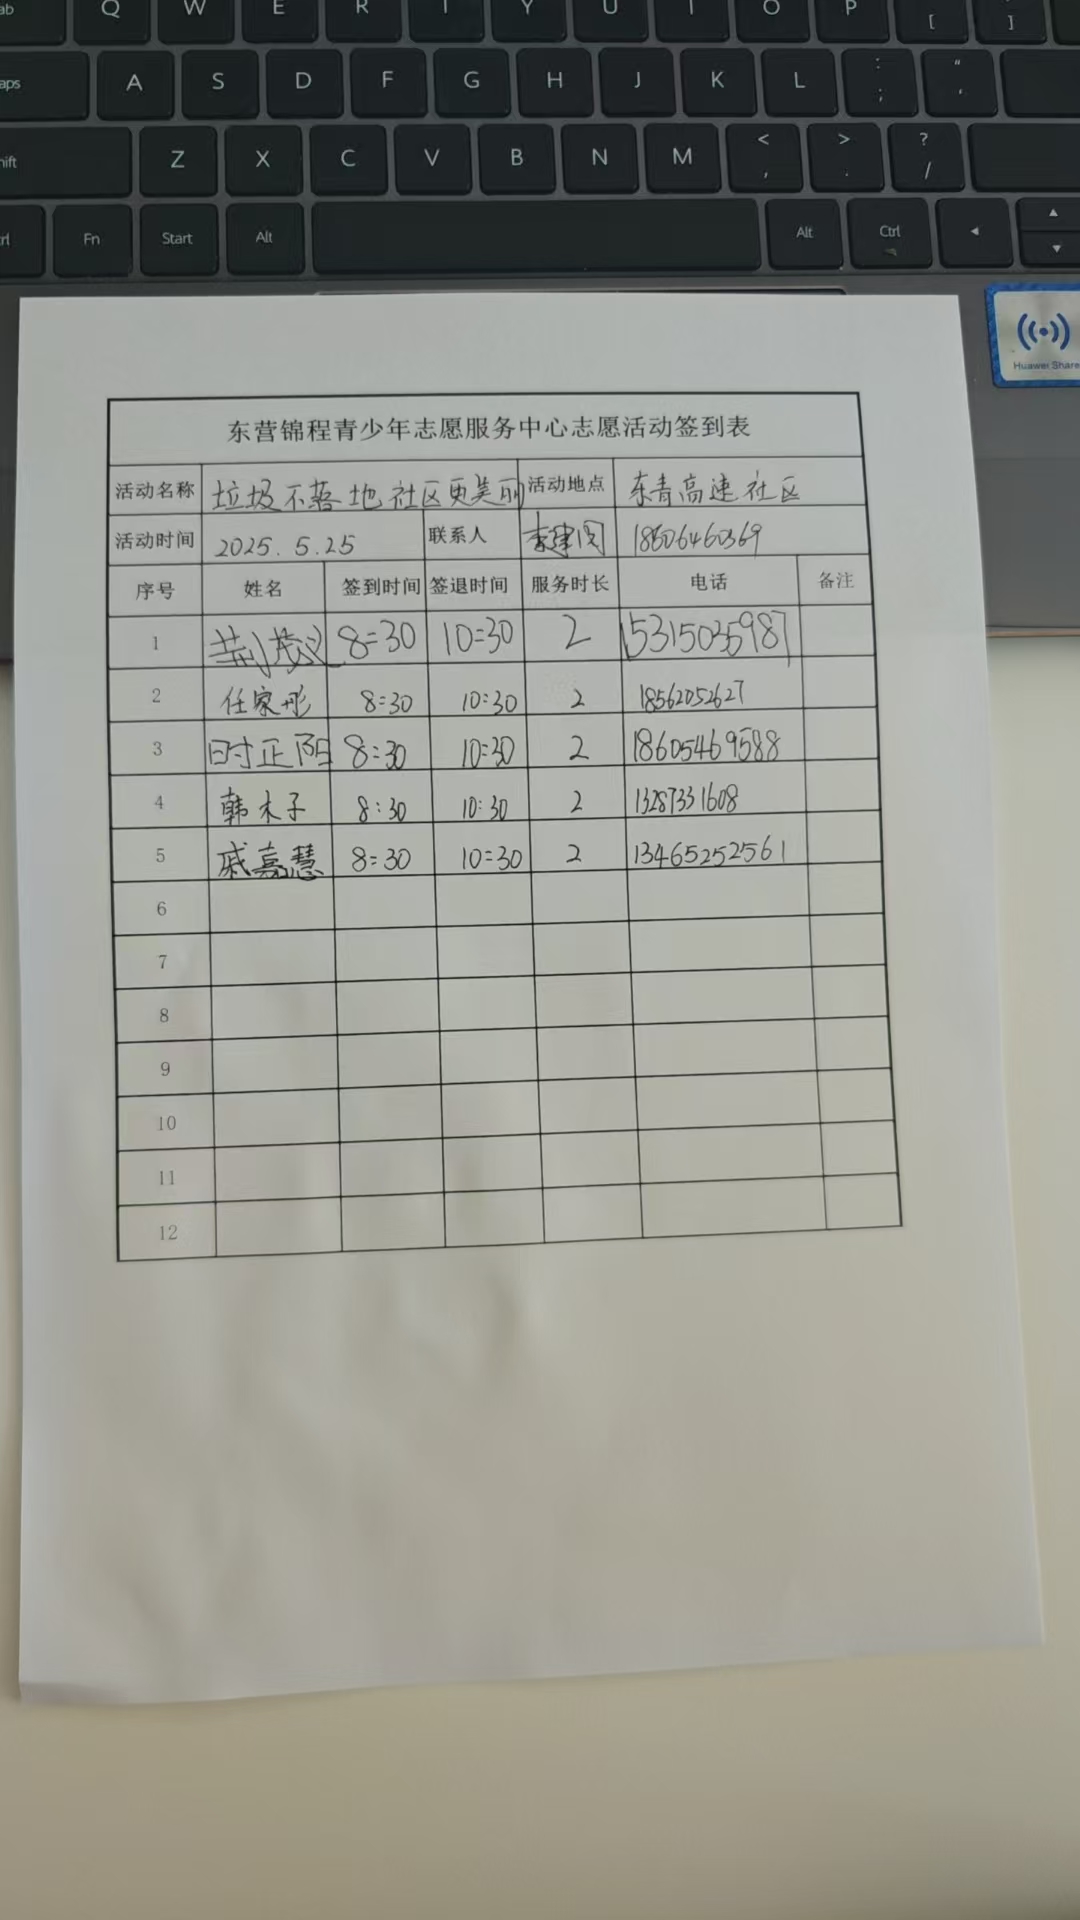 ab Q W E R T Y U I O P [ ]
aps A S D F G H J K L : ; " '
hift Z X C V B N M < , > . ? /
rl Fn Start Alt Alt Ctrl
Huawei Share
东营锦程青少年志愿服务中心志愿活动签到表
活动名称 垃圾不落地社区更美丽 活动地点 东青高速社区
活动时间 2025.5.25 联系人 李建国 18506460369
序号 姓名 签到时间 签退时间 服务时长 电话 备注
1 荆茂义 8:30 10:30 2 15315035987
2 任家彤 8:30 10:30 2 18562052627
3 时正阳 8:30 10:30 2 18605469588
4 韩木子 8:30 10:30 2 13287331608
5 戚嘉慧 8:30 10:30 2 13465252561
6
7
8
9
10
11
12